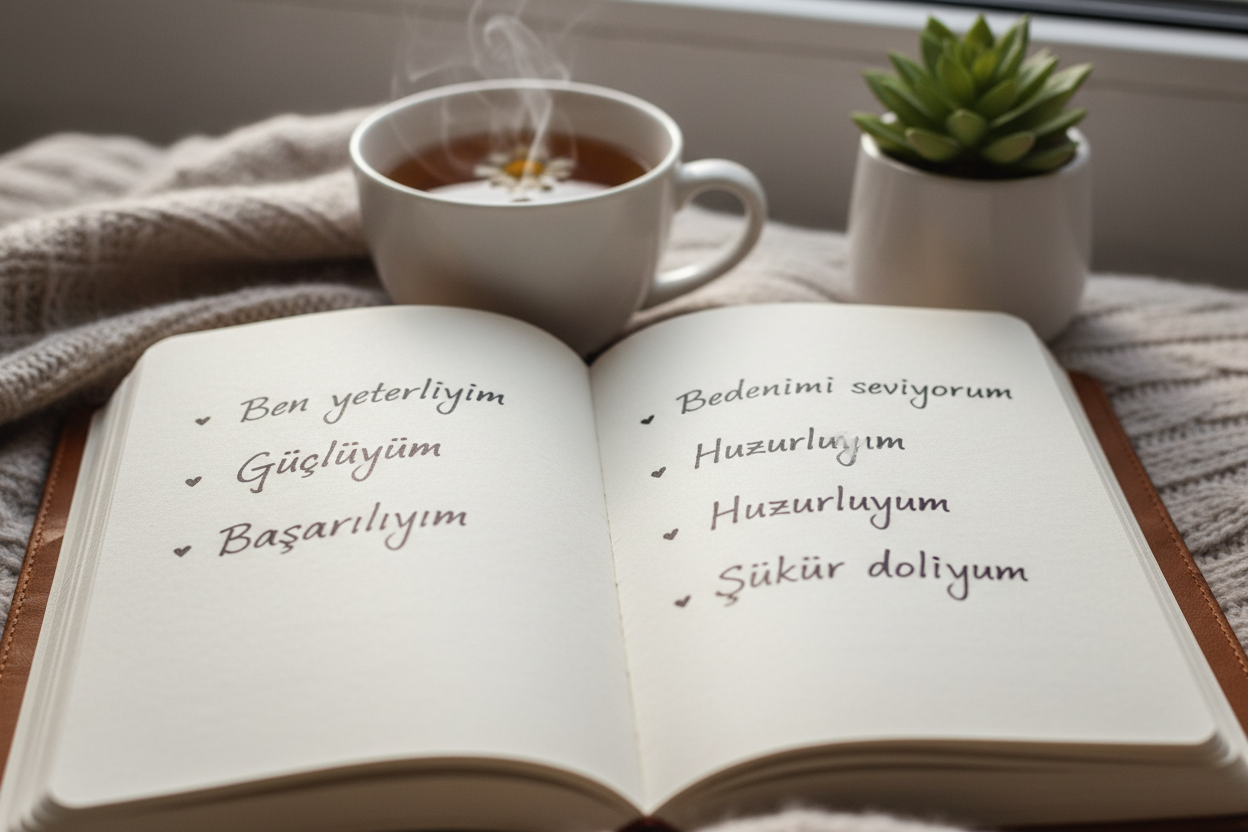 Ben yeterliyim
Güçlüyüm
Başarılıyım
Bedenimi seviyorum
Huzurluyum
Şükür doliyum